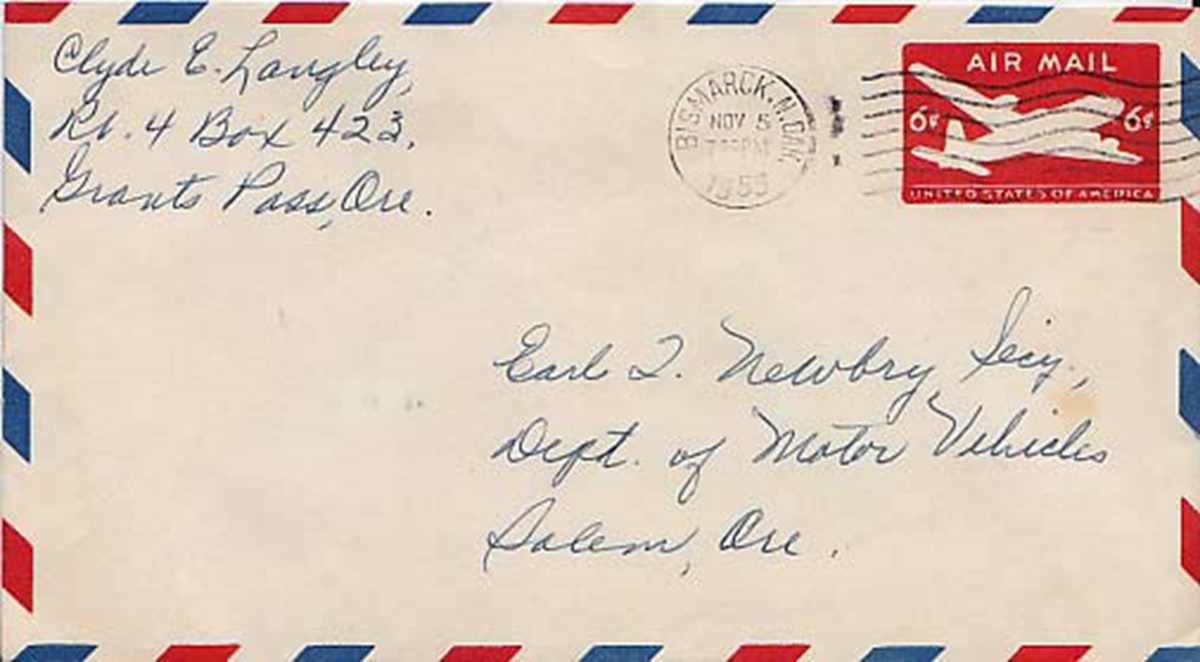 Clyde E. Langley,
Rt. 4 Box 423,
Grants Pass, Ore.
BISMARCK, N. DAK.
NOV 5
PM
AIR MAIL
6¢ 6¢
UNITED STATES OF AMERICA
Earl T. Newbry, Secy.,
Dept. of Motor Vehicles
Salem, Ore.